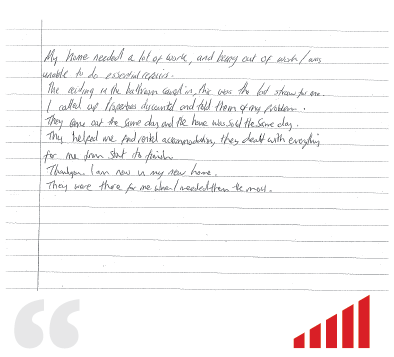 My home needed a lot of work, and being out of work I was
unable to do essential repairs.
The ceiling in the bathroom caved in, this was the last straw for me.
I called up Properties discounted and told them of my problem.
They came out the same day and the house was sold the same day.
They helped me find rental accommodation, they dealt with everything
for me from start to finish.
Thankyou I am now in my new home.
They were there for me when I needed them the most.